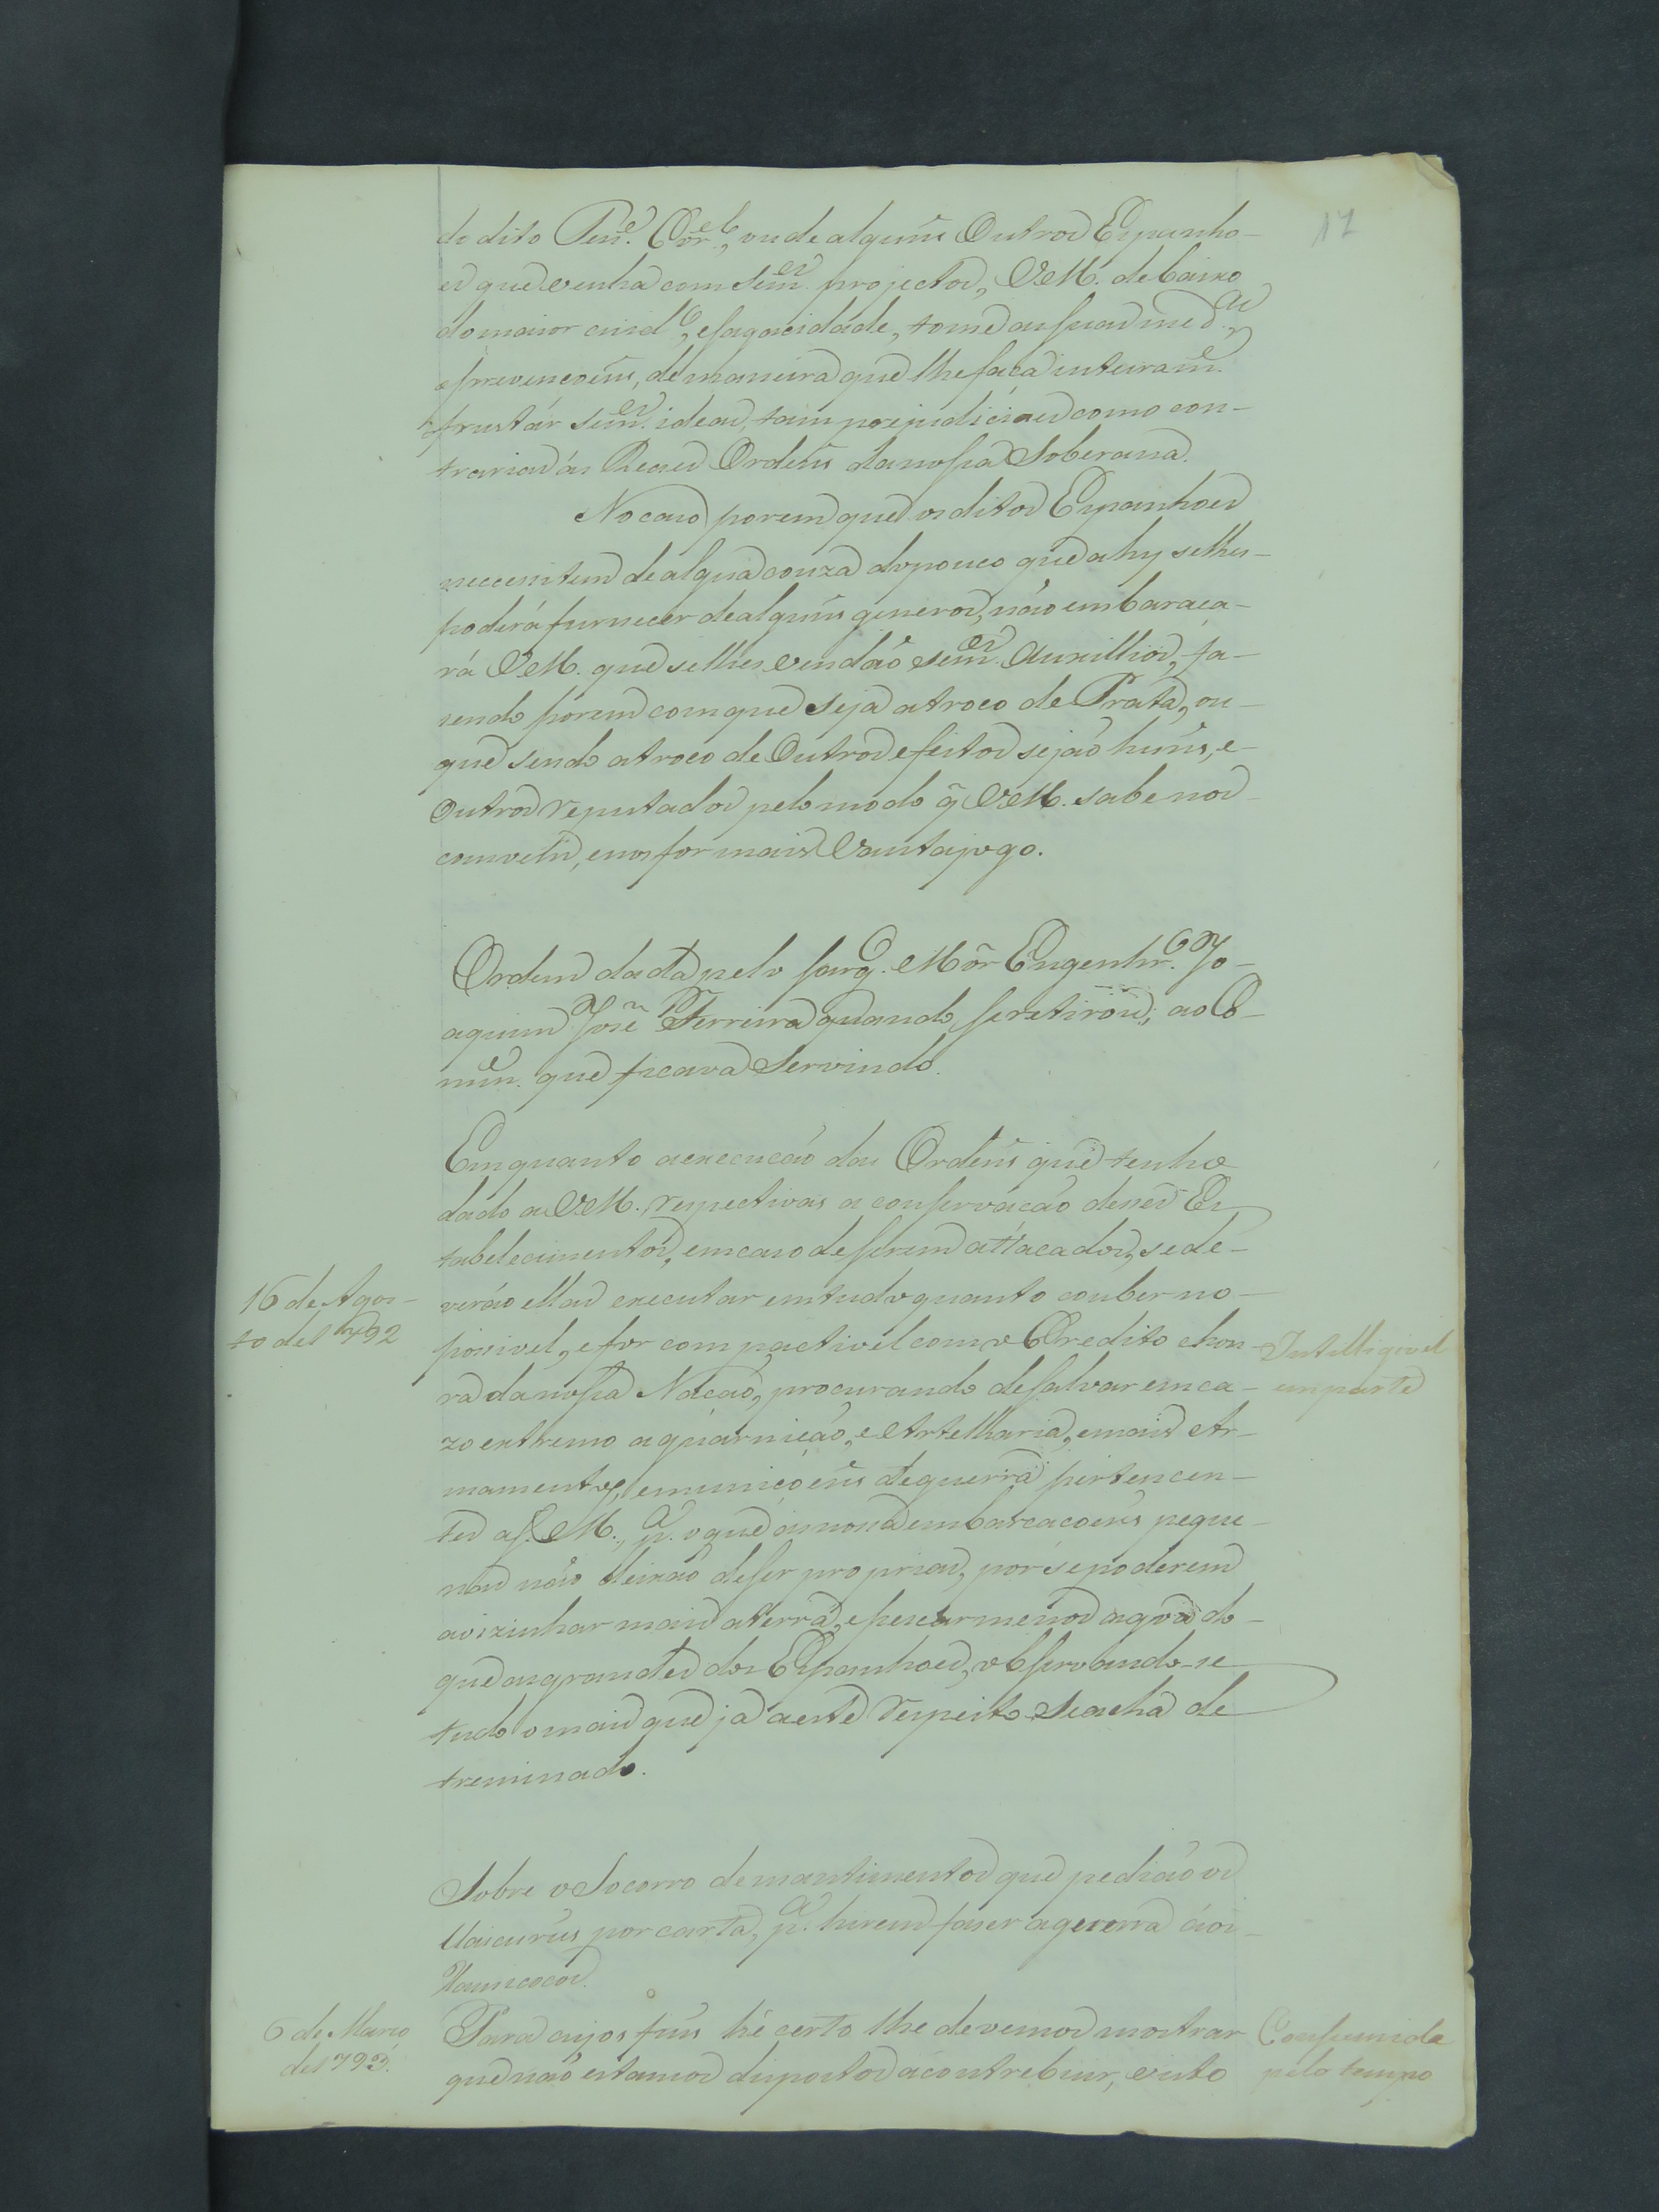 17
do dito Ten.e Cor.el, ou de alguñs Outros Espanho-
es que venha com sem.es projectos, VM. debaixo
do maior cuid.o, e sagacidade, tome as suas med.as,
e prevençoens, de maneira que lhe faça inteiram.e
frustár sem.es ideas, tam prejudiciaes como con-
trarias ás Reaes Ordens da nossa Soberana.
No caso porem que os ditos Espanhoes
neccesitem de algũa couza do pouco que ahy se lhes-
poderá furnecer de alguñs generos, não embaraça-
rá VM. que se lhes vendão sem.es Auxillios, fa-
sendo porem com que seja a troco de Prata, ou-
que sendo a troco de Outros efeitos sejão huñs, e-
Outros reputados pelo modo q̃ VM. sabe nos
convem, e nos for mais Vantajozo.
Ordem dada pelo Sarg.o Mór Engenhr.o Jo-
aquim José Ferreira quando se retirou; ao Co-
mm.e que ficava Servindo.
Emquanto a execução das Ordens que tenho
dado a VM. respectivas a conservação desses Es
tabelecimentos, em caso de serem attacados, se de-
verão ellas executar em tudo quanto couber no-
possivel, e for compactivel com o Credito e hon-
ra da nossa Nação, procurando de salvar em ca-
zo extremo a guarnição, e Artelharia, e mais Ar-
mamentos, e muniçoens de guerra pertencen-
tes a S. M., p.a o que as nossas embarcacoens peque-
nas não deixão de ser proprias, por se poderem
avizinhar mais a terra, e pescar menos agoa do-
que as grandes dos Espanhoes, observando-se
tudo o mais que ja a este respeito Se acha de
treminado.
16 de Agos-
to de 1792
Intelligivel
em parte
Sobre o Socorro de mantimentos que pedião os
Uaicurús por carta, p.a hirem faser a guerra áos
Uanicocos.
Para cujos fins hé certo lhe devemos mostrar
que não estamos dispostos a contrebuir, visto
6 de Março
de 1793.
Consumida
pelo tempo